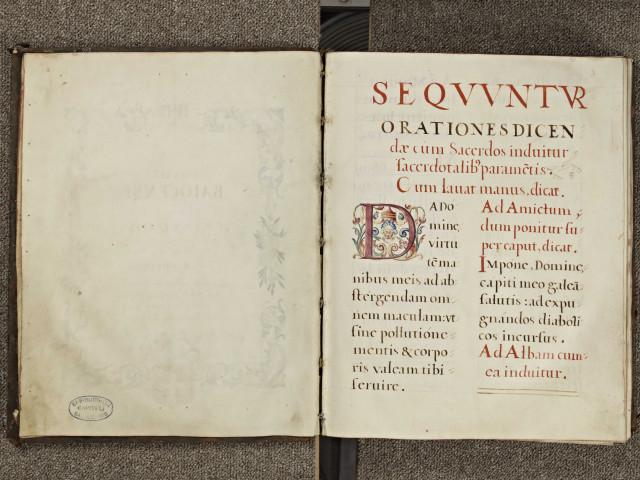 SEQVVNTVR
ORATIONES DICEN
dæ cùm Sacerdos induitur
sacerdotalibꝰ paramẽtis.
Cum lauat manus, dicat.
DA DO
mine,
virtu
tẽ ma
nibus meis ad ab
stergendam om
nem maculam: vt
sine pollutione
mentis & corpo
ris valeam tibi
seruire.
Ad Amictum,
dum ponitur su
per caput, dicat.
Impone, Domine,
capiti meo galeã
salutis: ad expu
gnandos diaboli
cos incursus.
Ad Albam cum
ea induitur.